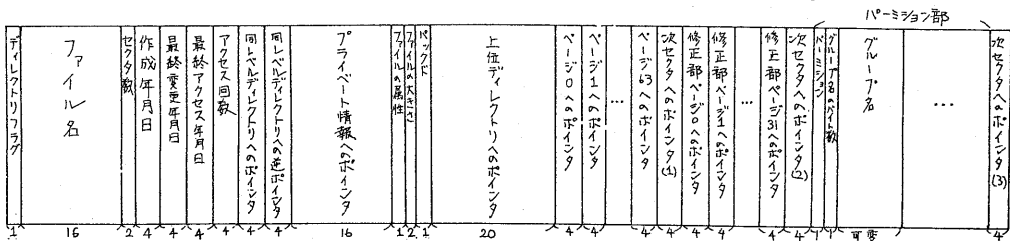 パーミション部
ディレクトリフラグ
ファイル名
セクタ数
作成年月日
最終変更年月日
最終アクセス年月日
アクセス回数
同レベルディレクトリへのポインタ
同レベルディレクトリへの逆ポインタ
プライベート情報へのポインタ
ファイルの属性
ファイルの大きさ
パックド
上位ディレクトリへのポインタ
ページ0へのポインタ
ページ1へのポインタ
...
ページ63へのポインタ
次セクタへのポインタ(1)
修正部ページ0へのポインタ
修正部ページ1へのポインタ
...
修正部ページ31へのポインタ
次セクタへのポインタ(2)
パーミション
グループ名のバイト数
グループ名
...
次セクタへのポインタ(3)
1 16 2 4 4 4 4 4 4 16 1 2 1 20 4 4 4 4 4 4 4 4 1 1 可変 4